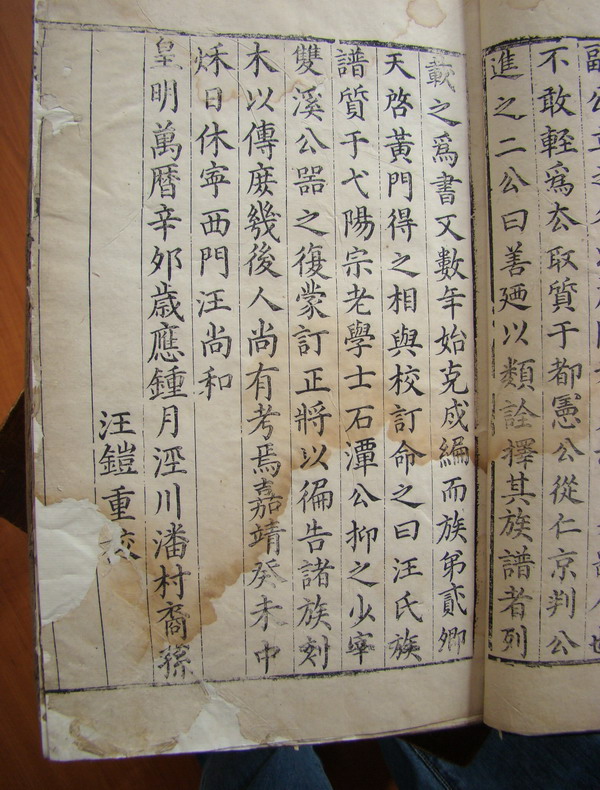 不敢輕爲去取質于都憲公從仁京判公
進之二公曰善廼以類詮擇其族譜者列
載之爲書又數年始克成編而族弟貳卿
天啓黃門得之相與校訂命之曰汪氏族
譜質于弋陽宗老學士石潭公抑之少宰
雙溪公器之復蒙訂正將以徧告諸族刻
木以傳庶幾後人尚有考焉嘉靖癸未中
秌日休寜西門汪尚和
皇明萬曆辛夘歲應鍾月涇川潘村裔孫
汪鎧重校